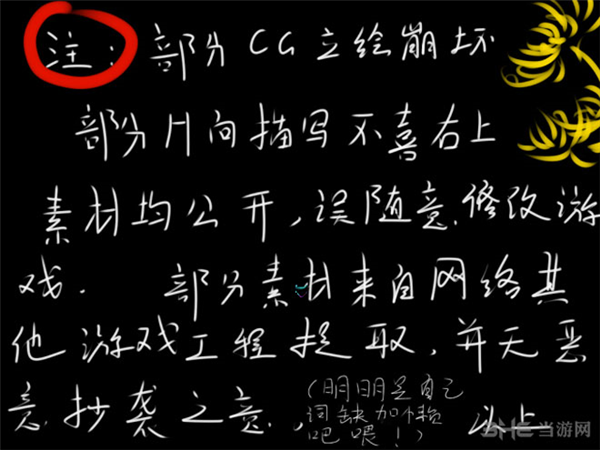 注:部分CG立绘崩坏
部分H向描写不喜右上
素材均公开,误随意修改游
戏.部分素材来自网络其
他游戏工程提取,并无恶
意抄袭之意,(明明是自己
词缺加懒
吧喂!)以上
当游网